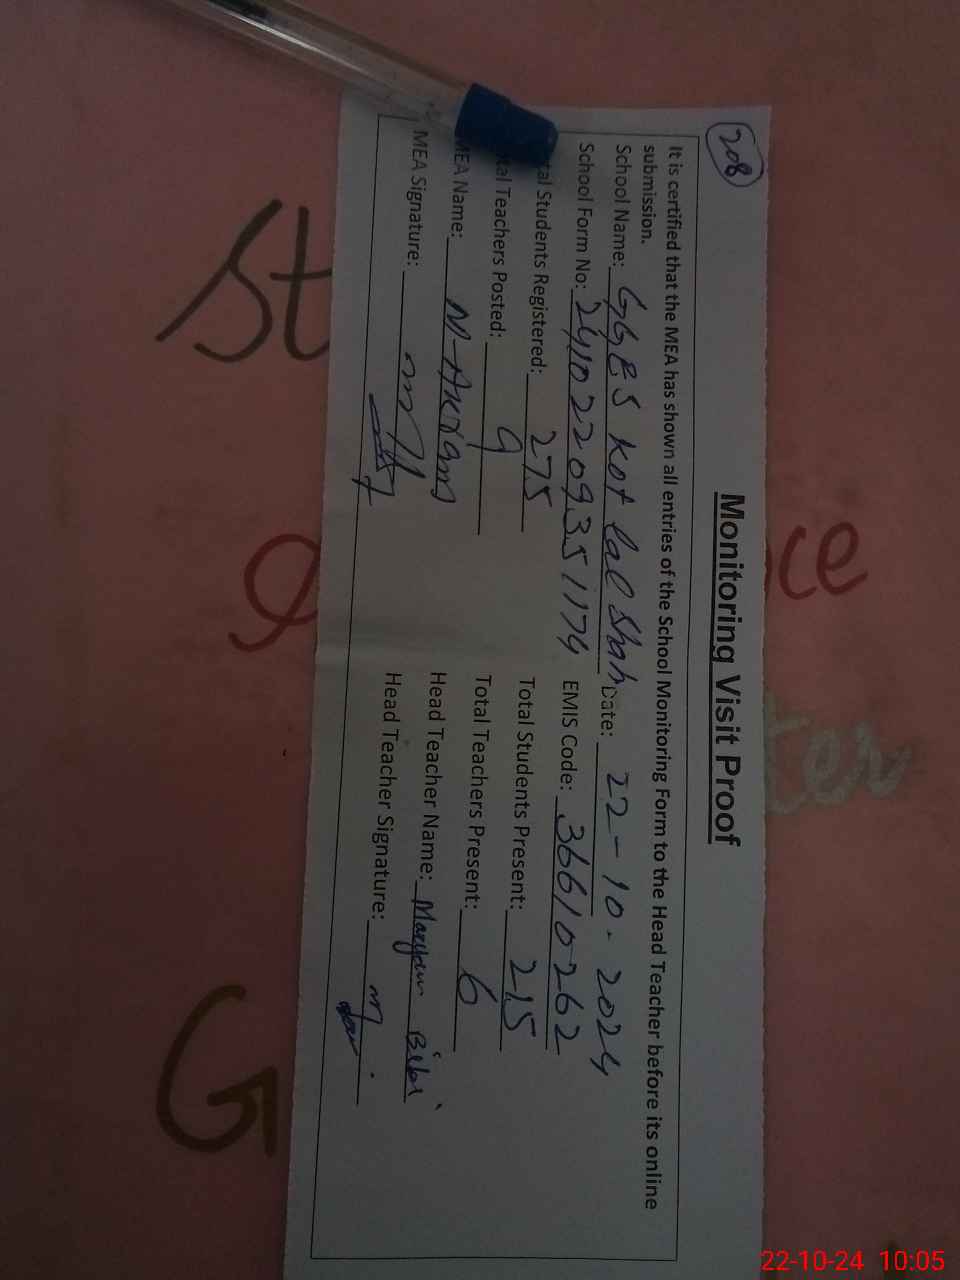 208
Monitoring Visit Proof
It is certified that the MEA has shown all entries of the School Monitoring Form to the Head Teacher before its online
submission.
School Name: GGES Kot Lal Shah Date: 22-10-2024
School Form No: 24102209351174 EMIS Code: 36610262
tal Students Registered: 275 Total Students Present: 215
tal Teachers Posted: 9 Total Teachers Present: 6
MEA Name: M-Akram Head Teacher Name: Maryam Bibi
MEA Signature: Head Teacher Signature:
St
ce
ter
G
22-10-24 10:05